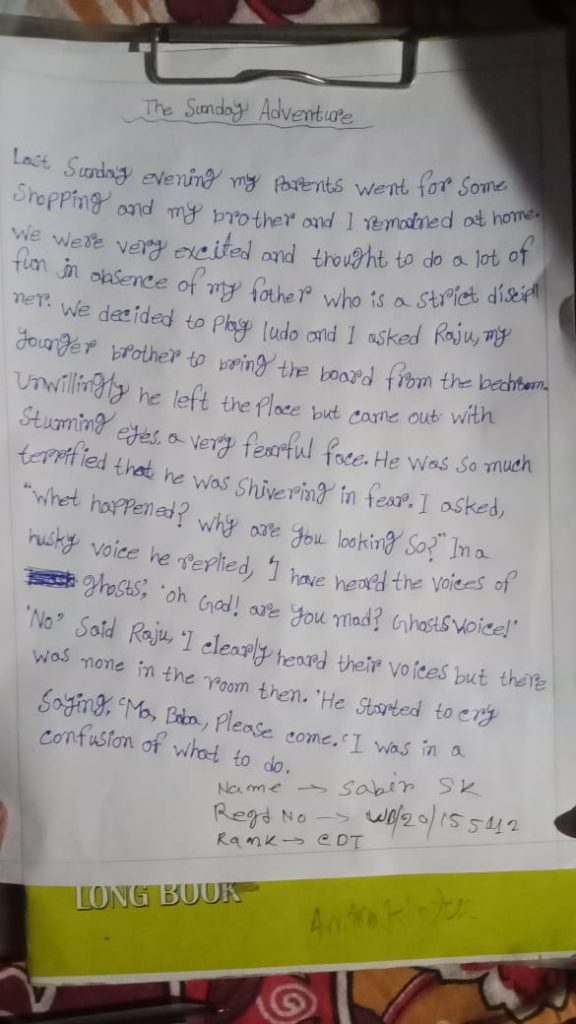 The Sunday Adventure
Last Sunday evening my parents went for some
shopping and my brother and I remained at home.
We were very excited and thought to do a lot of
fun in absence of my father who is a strict discipli
ner. We decided to play ludo and I asked Raju, my
younger brother to bring the board from the bedroom.
Unwillingly he left the place but came out with
stunning eyes, a very fearful face. He was so much
terrified that he was shivering in fear. I asked,
"Whet happened? Why are you looking so?" In a
husky voice he replied, 'I have heard the voices of
ghosts', 'oh God! are you mad? Ghosts voice!'
'No" Said Raju, 'I clearly heard their voices but there
was none in the room then. 'He started to cry
saying, 'Ma, Baba, Please come. 'I was in a
confusion of what to do.
Name → Sabir SK
Regd No → WB/20/155412
Rank → CDT
LONG BOOK